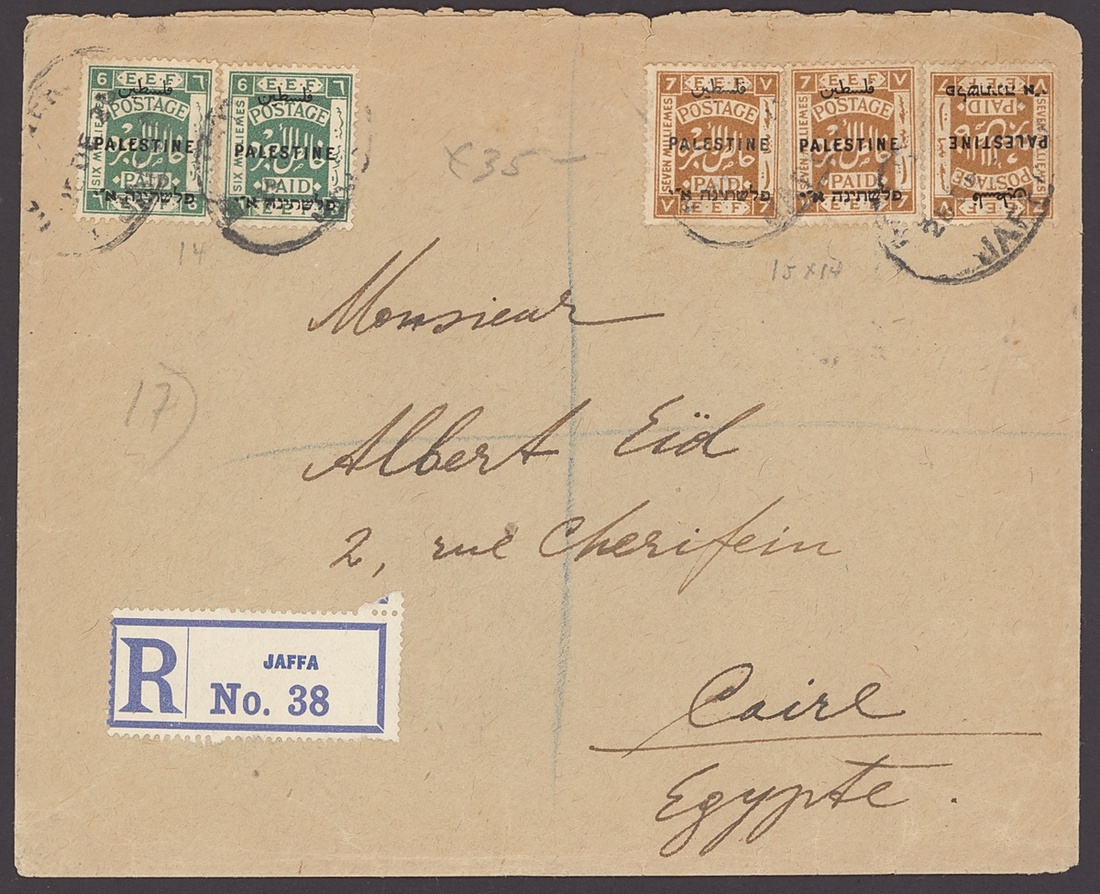 6 E.E.F ٦
فلسطين
POSTAGE
SIX MILLIEMES
PALESTINE
PAID
פלשתינה א״י
E.E.F
6 E.E.F ٦
فلسطين
POSTAGE
SIX MILLIEMES
PALESTINE
PAID
פלשתינה א״י
E.E.F
7 E.E.F ٧
فلسطين
POSTAGE
SEVEN MILLIEMES
PALESTINE
PAID
פלשתינה א״י
٧ E.E.F 7
7 E.E.F ٧
فلسطين
POSTAGE
SEVEN MILLIEMES
PALESTINE
PAID
פלשתינה א״י
E.E.F
7 E.E.F
POSTAGE
SEVEN MILLIEMES
PALESTINE
PAID
פלשתינה א״י
JAFFA
x35-
14
15 x 14
17)
Monsieur
Albert Eïd
2, rue Cherifein
Caire
Egypte.
R
JAFFA
No. 38